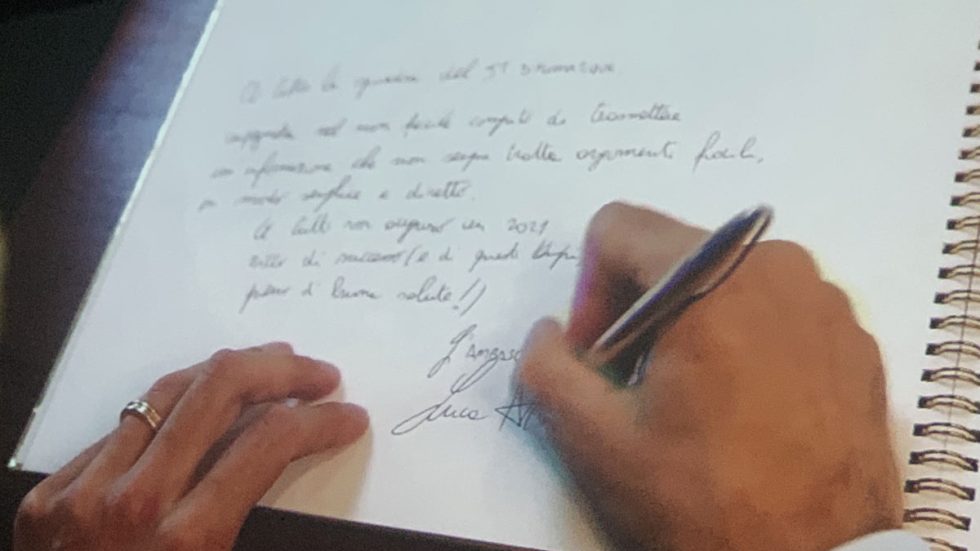 A tutta la squadra del
impegnata nel non facile compito di trasmettere
un'informazione che non sempre tratta argomenti facili,
in modo semplice e diretto.
A tutti voi auguro un 2021
di successo (e di questi tempi
pieno di buona salute!)
L'
Luca